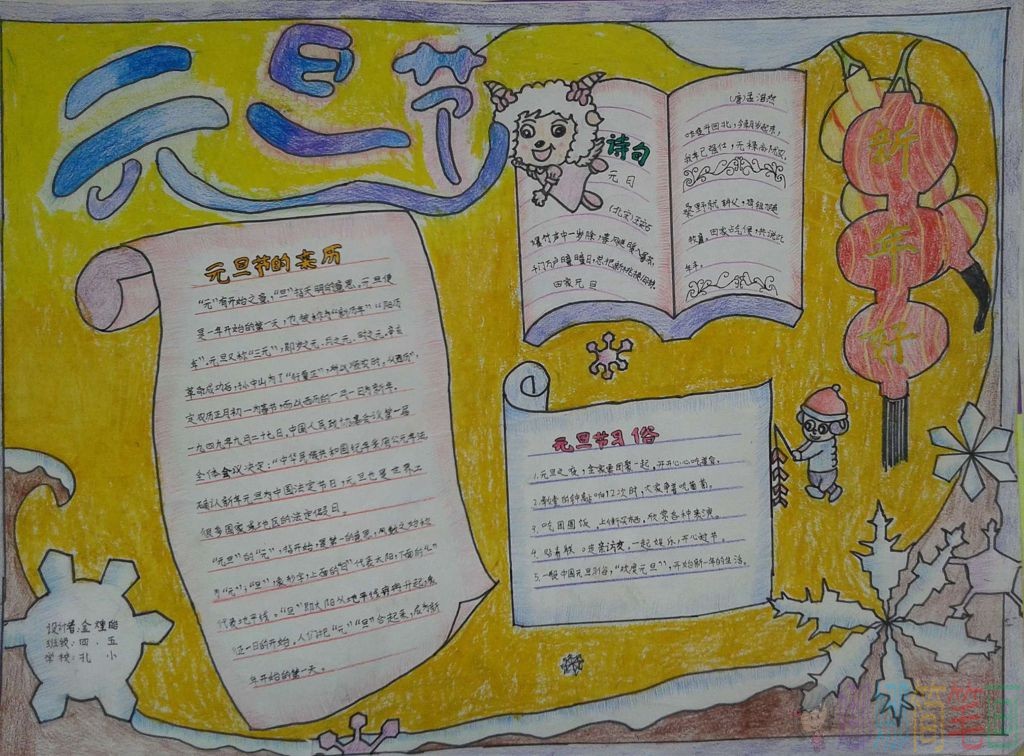 元旦节
元旦节的来历
"元"有开始之意，"旦"指天明的意思。元旦便
是一年开始的第一天，也被称为"新历年""阳历
年"。元旦又称"三元"，即岁之元、月之元、时之元。辛亥
革命成功后，孙中山为了"行夏正，所以顺农时，从西历"，
定农历正月初一为春节，而以西历的一月一日为新年。
一九四九年九月二十七日，中国人民政协会议第一届
全体会议决定："中华人民共和国纪年采用公元年法
确认新年元旦为中国法定节日，元旦也是世界上
很多国家或地区的法定假日。
"元旦"的"元"，指开始，是第一的意思，
"元"；"旦"，象形字，上面的"日"代表太阳，下面的"一"
代表地平线。"旦"即太阳从地平线冉冉升起，象
征一日的开始。人们把"元""旦"合起来，
年开始的第一天。
诗句
元日
(北宋)王安石
爆竹声中一岁除，春风送暖入屠苏。
千门万户曈曈日，总把新桃换旧符。
田家元日
(唐)孟浩然
昨夜斗回北，今朝岁起东，
我年已强仕，无禄尚忧农。
桑野就耕父，荷锄随
牧童。田家占气候，共说此
年丰。
新年好
元旦节习俗
1.元旦之夜，全家要团聚一起，开开心心
2. 12次时，大家争着吃葡萄。
3.吃团圆饭，上街
4.贴春联 一起娱乐，开心过节。
5.一般中国元旦习俗，"欢度元旦"，开始新一年的生活。
设计者:金
班级：四．五
学校：孔 小